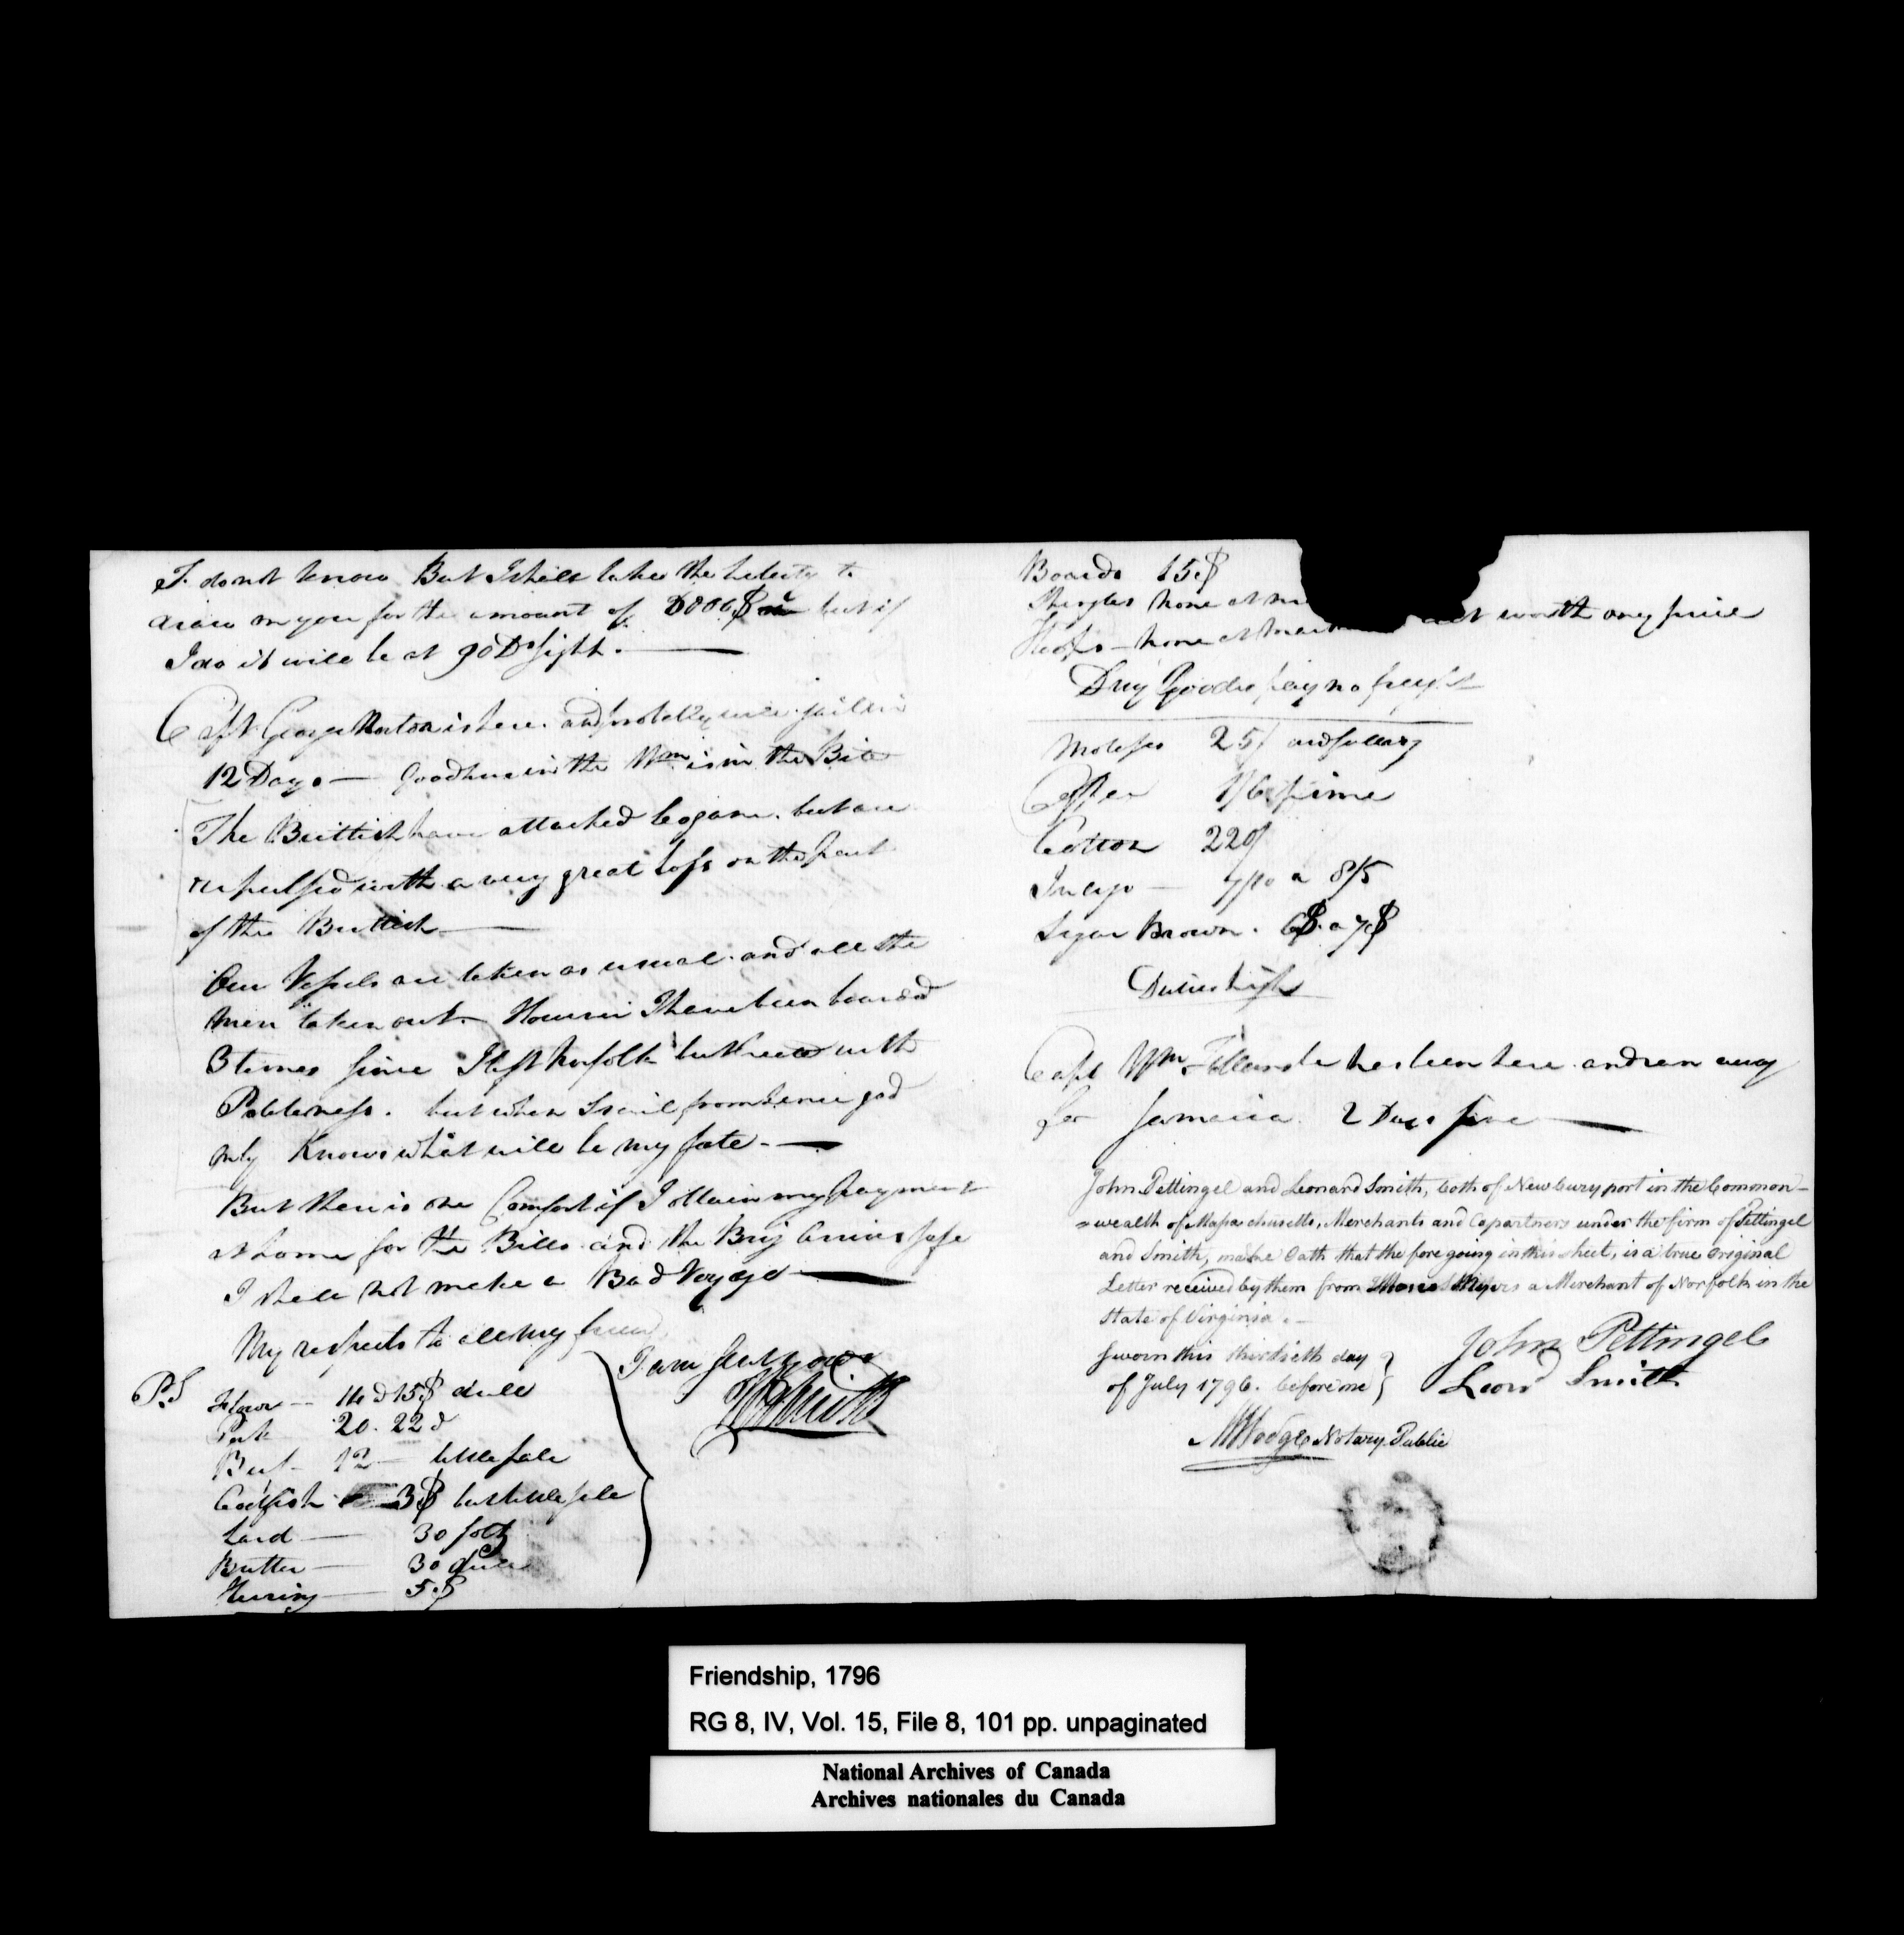 I do not know But I shall take the Liberty to
draw on you for the amount of $ but if
I do it will be at 90 Ds sight.
Capt George Norton is here. and probably will sail in
12 Days — Goodhue in the Wm is in the Bite
The Brittish have attacked Leogane. but are
repulsed with a very great loss on the part
of the Brittish
Our Vessels are taken as usual. and all the
Men taken out — However I have been boarded
3 times since I left Norfolk but treated with
Politeness. but when I sail from hence god
only Knows what will be my fate. —
But there is one Comfort if I obtain my payment
at home for the Bills. and the Brig Arrives safe
I shall not make a Bad Voyage
My respects to all my friends
I am
P.S Flour — 14 a 15$ dull
Pork 20. 22 d
Beef 12 — little sale
Codfish 3$ but little sale
Lard — 30
Butter — 30 dull
Herring — 5$
Boards 15$
Shingles none at not worth any price
Hoops — none at
Dry Goods pay no freight
Molasses 25/
Coffee 1/6 prime
Cotton 220/
Indigo — 7/10 a 8/5
Sugar Brown. 6$ a 7$
Duties high
Capt Wm has been here. and ran away
for Jamaica. 2 Days since
John Pettingel and Leonard Smith, both of Newburyport in the Common-
=wealth of Massachusetts, Merchants and Copartners under the firm of Pettingel
and Smith, make Oath that the foregoing in this sheet, is a true original
Letter received by them from Moses Myers a Merchant of Norfolk in the
State of Virginia. —
Sworn this thirtieth day
of July 1796. before me
John Pettingel
Leond Smith
M Hodge Notary Public
Friendship, 1796
RG 8, IV, Vol. 15, File 8, 101 pp. unpaginated
National Archives of Canada
Archives nationales du Canada